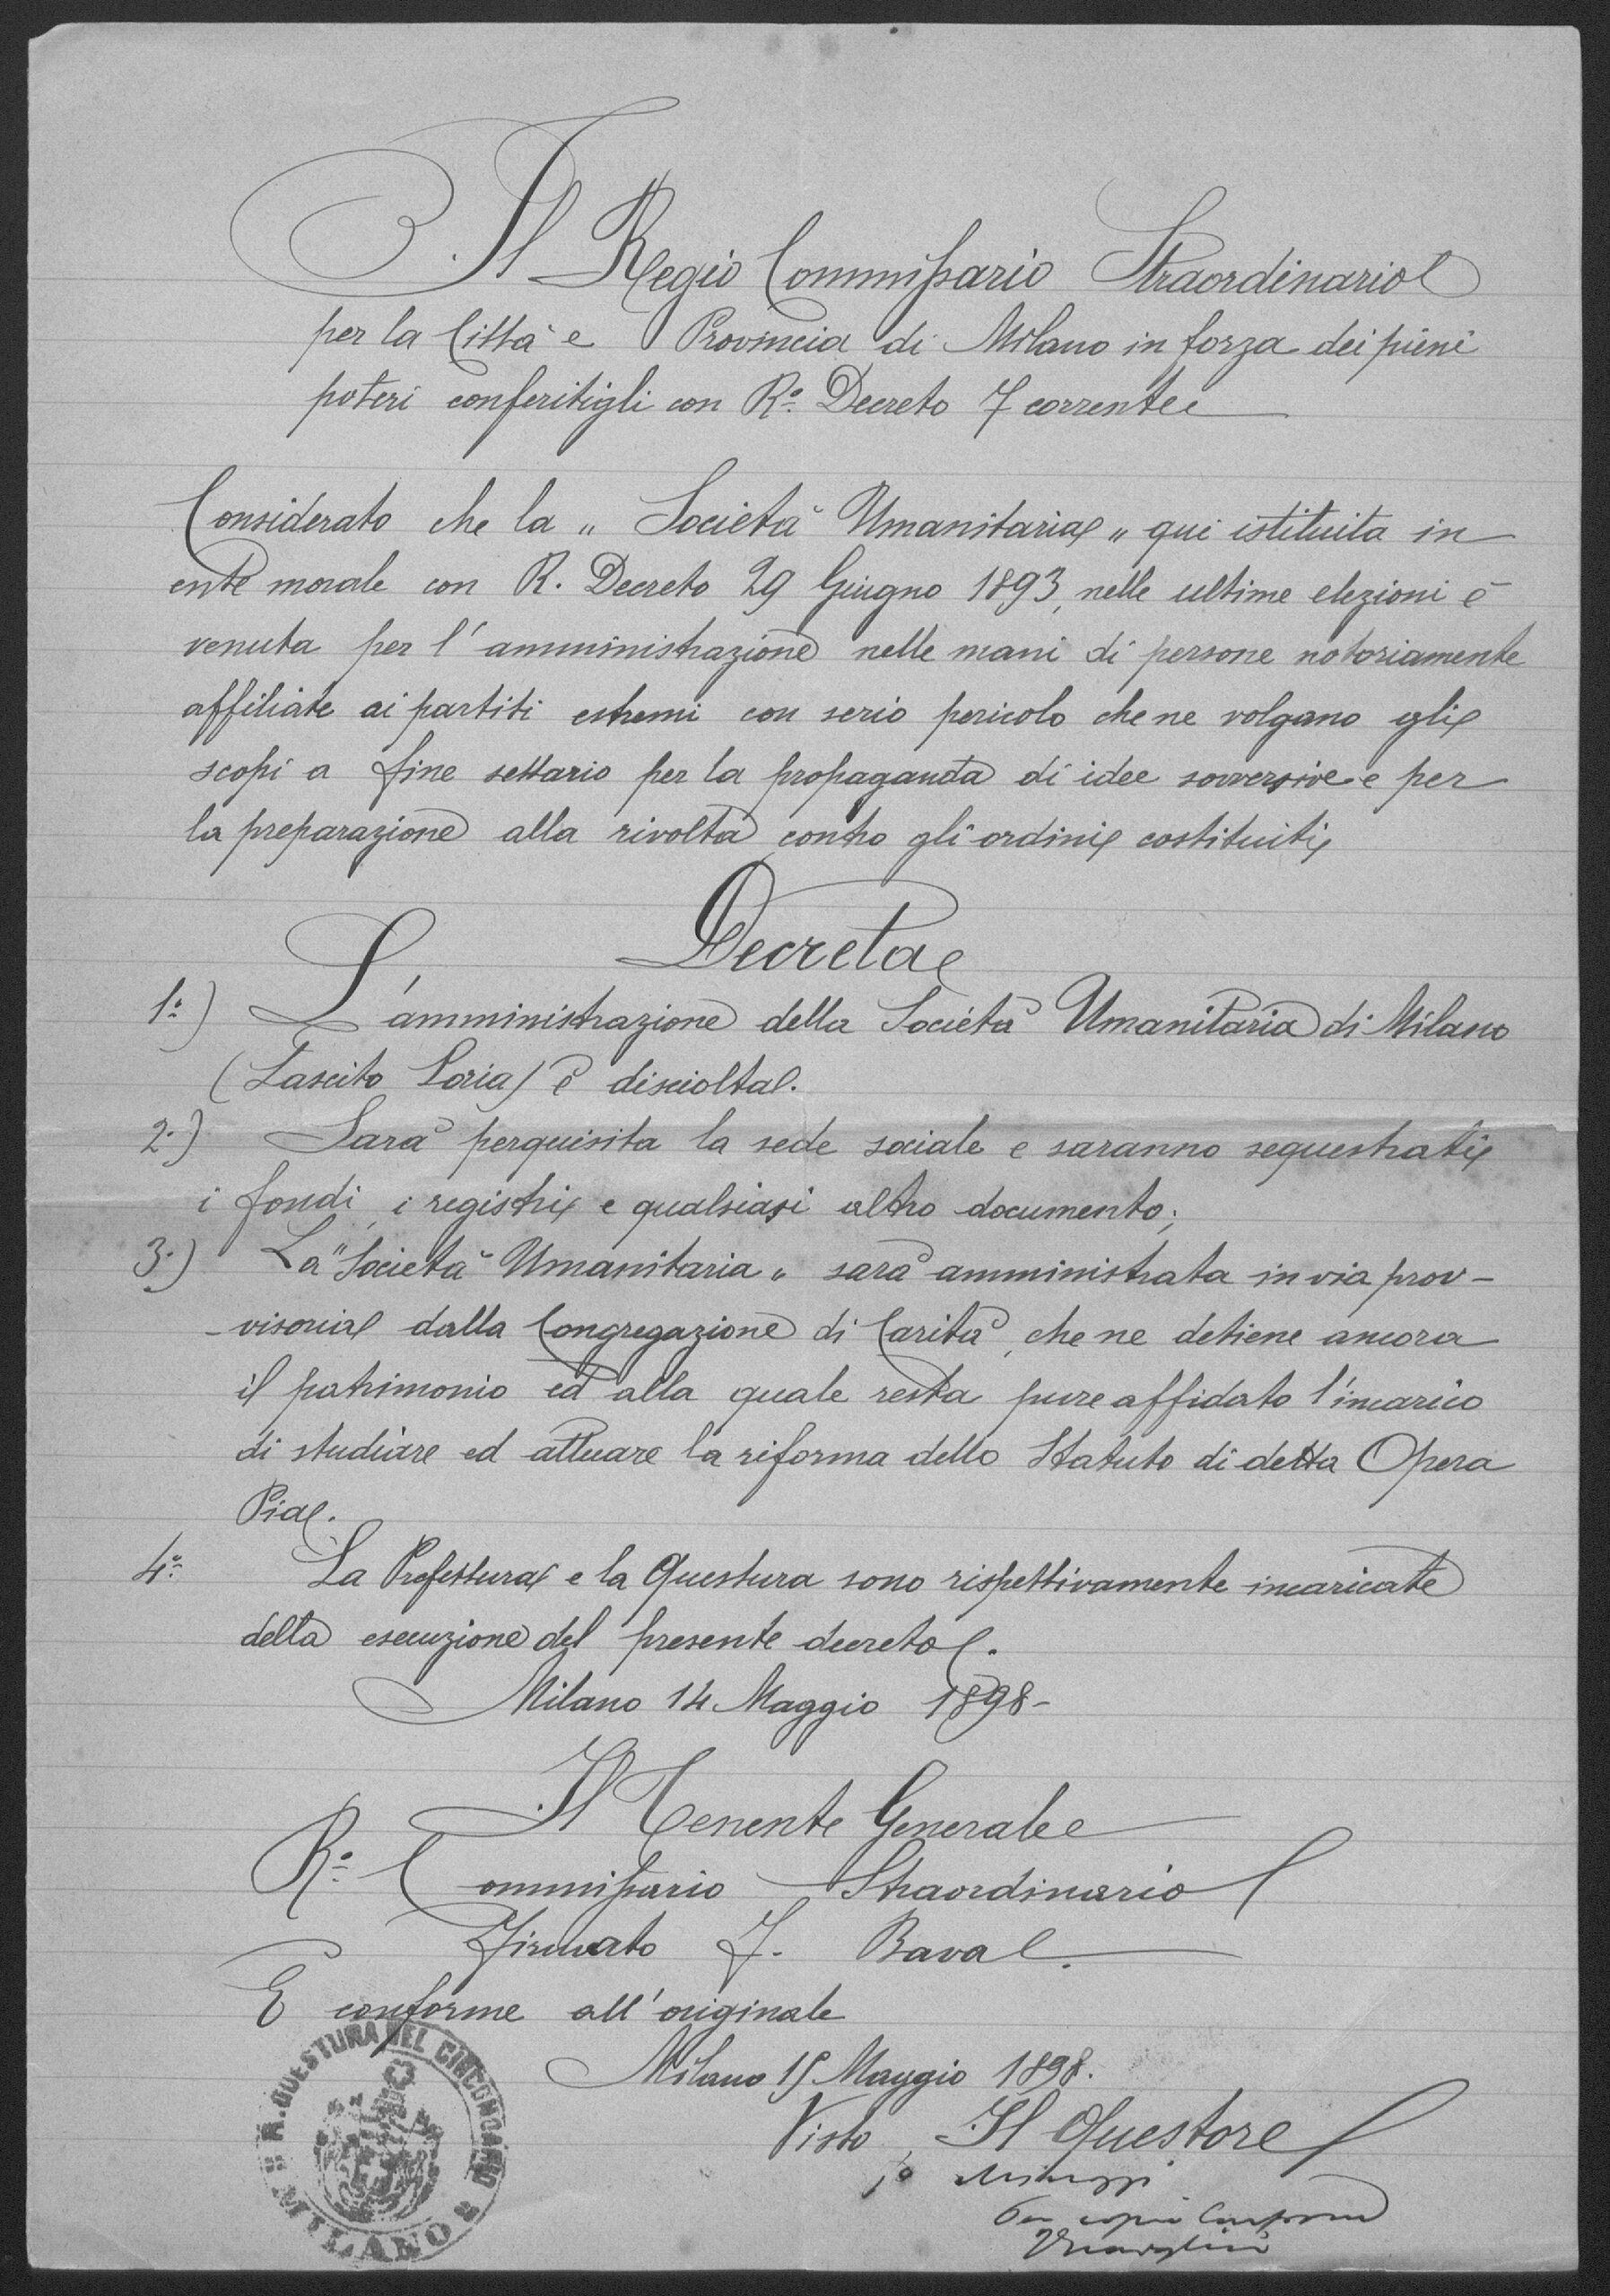 Il Regio Commissario Straordinario
per la Città e Provincia di Milano in forza dei pieni
poteri conferitigli con R.º Decreto 7 corrente
Considerato che la „ Società Umanitaria „ qui istituita in
ente morale con R. Decreto 29 Giugno 1893, nelle ultime elezioni è
venuta per l'amministrazione nelle mani di persone notoriamente
affiliate ai partiti estremi con serio pericolo che ne volgano gli
scopi a fine settario per la propaganda di idee sovversive e per
la preparazione alla rivolta contro gli ordini costituiti
Decreta
1.º) L'amministrazione della Società Umanitaria di Milano
(Lascito Loria) è disciolta.
2.º) Sarà perquisita la sede sociale e saranno sequestrati
i fondi, i registri e qualsiasi altro documento;
3.º) La "Società Umanitaria „ sarà amministrata in via prov-
-visoria dalla Congregazione di Carità, che ne detiene ancora
il patrimonio ed alla quale resta pure affidato l'incarico
di studiare ed attuare la riforma dello Statuto di detta Opera
Pia.
4.º La Prefettura e la Questura sono rispettivamente incaricate
della esecuzione del presente decreto.
Milano 14 Maggio 1898-
Il Tenente Generale
R.º Commissario Straordinario
Firmato F. Bava
E conforme all'originale
Milano 15 Maggio 1898.
Visto, Il Questore
f.º Minozzi
Per copia conforme
R. QUESTURA DEL CIRCONDARIO MILANO